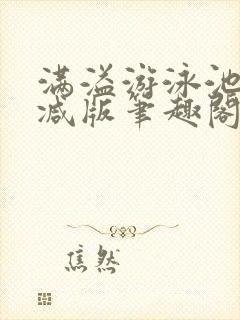 满溢游泳池
减版笔趣阁
焦然